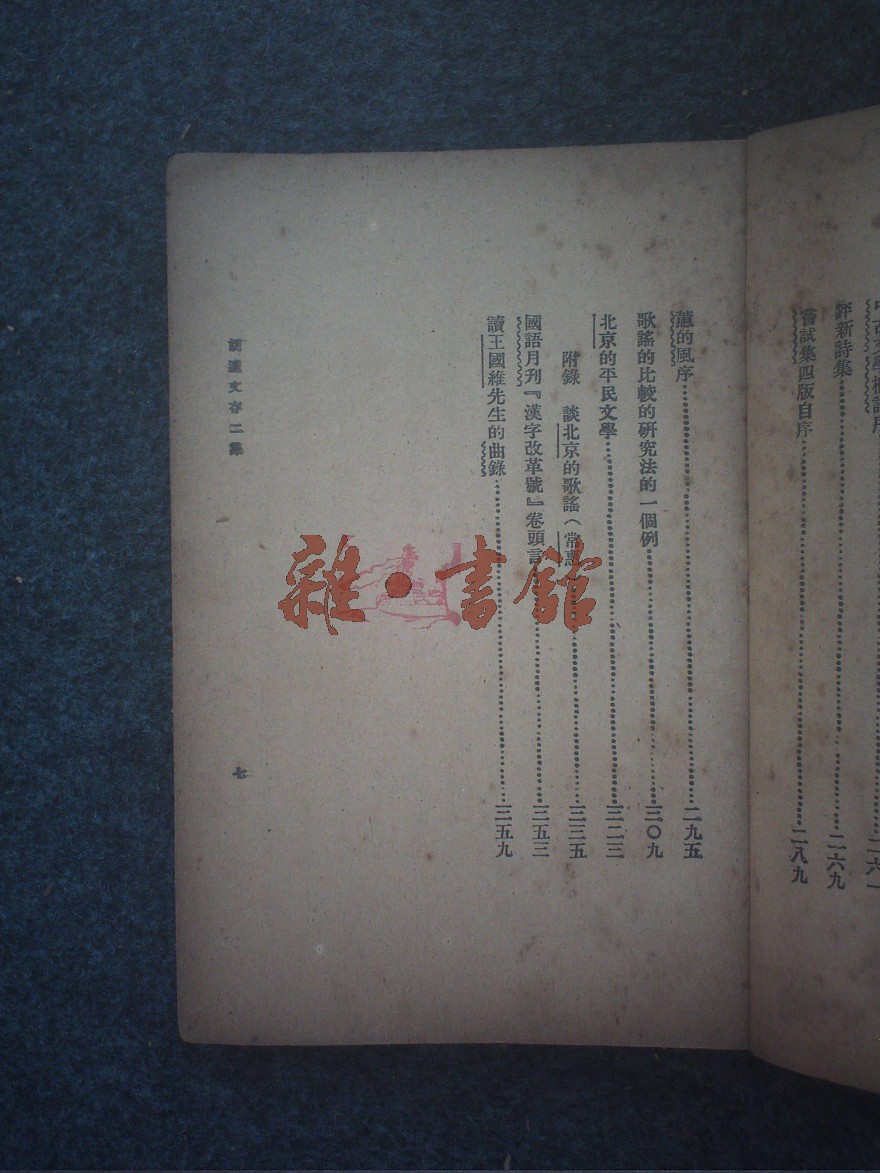 評新詩集 二六九
嘗試集四版自序 二八九
蕙的風序 二九五
歌謠的比較的研究法的一個例 三〇九
北京的平民文學 三二三
附錄 談北京的歌謠(常惠 三三五
國語月刊『漢字改革號』卷頭言 三五三
讀王國維先生的曲錄 三五九
胡適文存二集
七
雜·書館